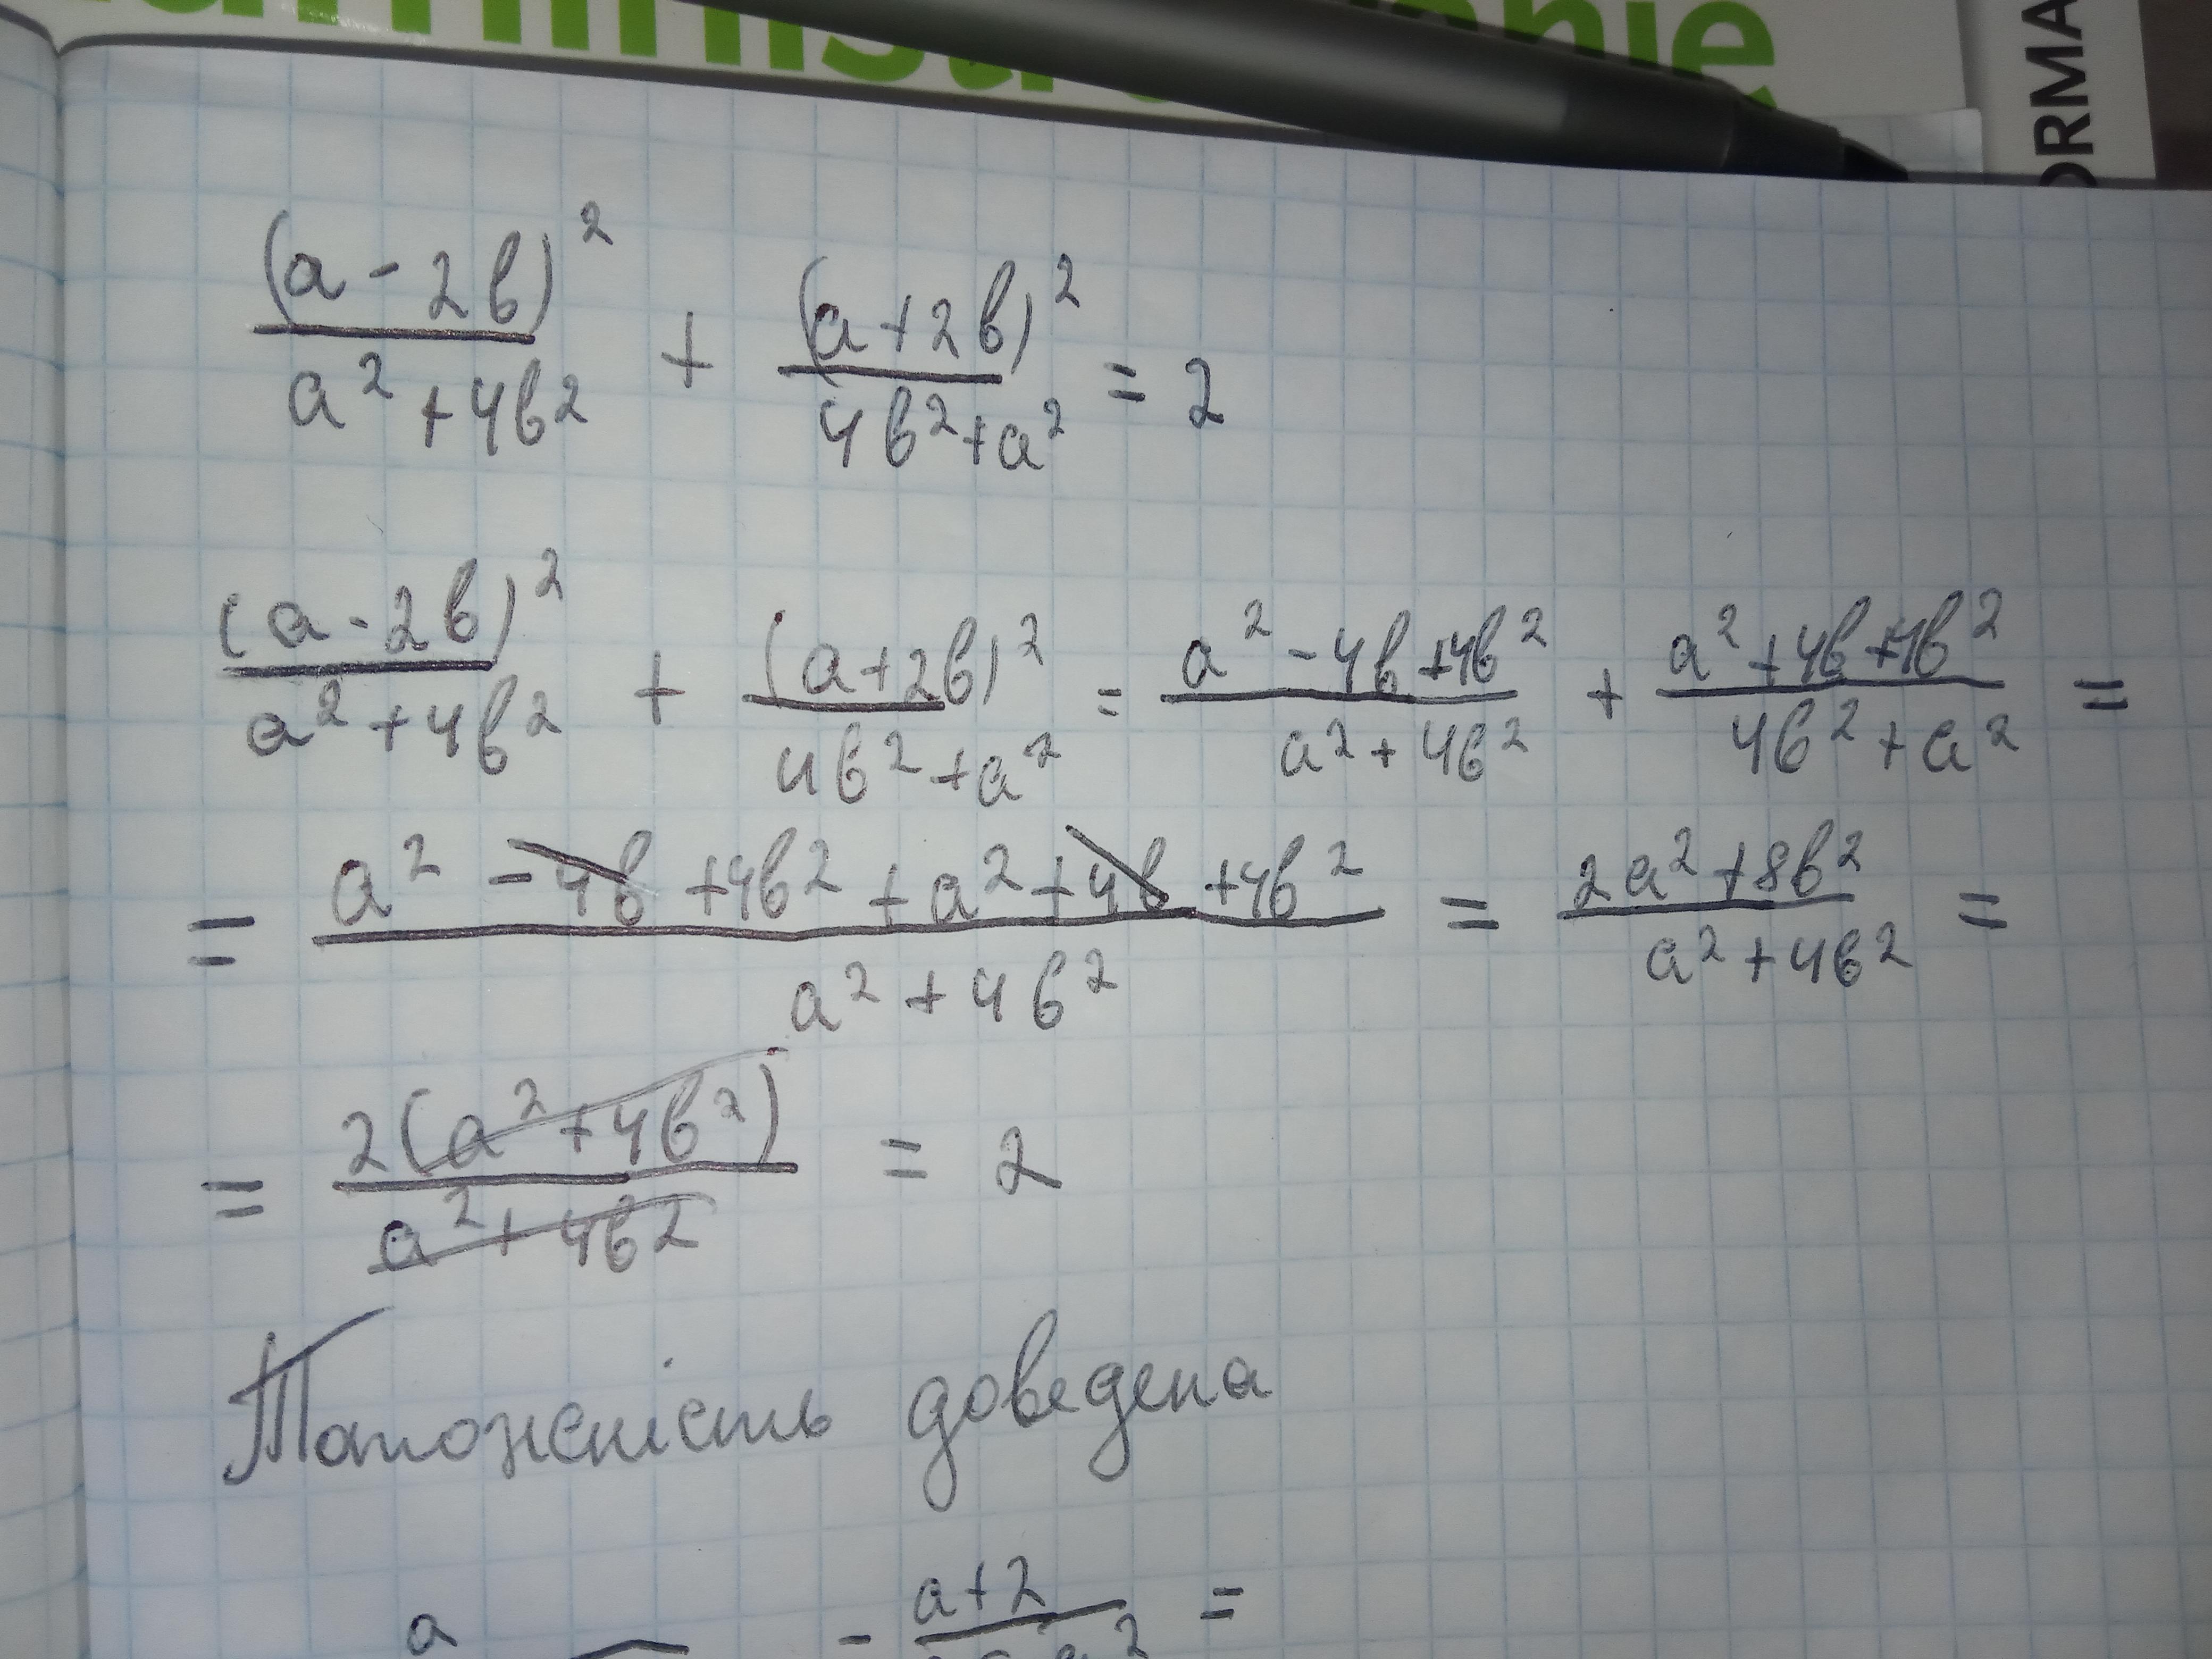 ORMA
(a - 2b)² / (a² + 4b²) + (a + 2b)² / (4b² + a²) = 2
(a - 2b)² / (a² + 4b²) + (a + 2b)² / (4b² + a²) = (a² - 4b + 4b²) / (a² + 4b²) + (a² + 4b + 4b²) / (4b² + a²) =
= (a² - 4b + 4b² + a² + 4b + 4b²) / (a² + 4b²) = (2a² + 8b²) / (a² + 4b²) =
= 2(a² + 4b²) / (a² + 4b²) = 2
Тотожність доведена
a - a+2 =